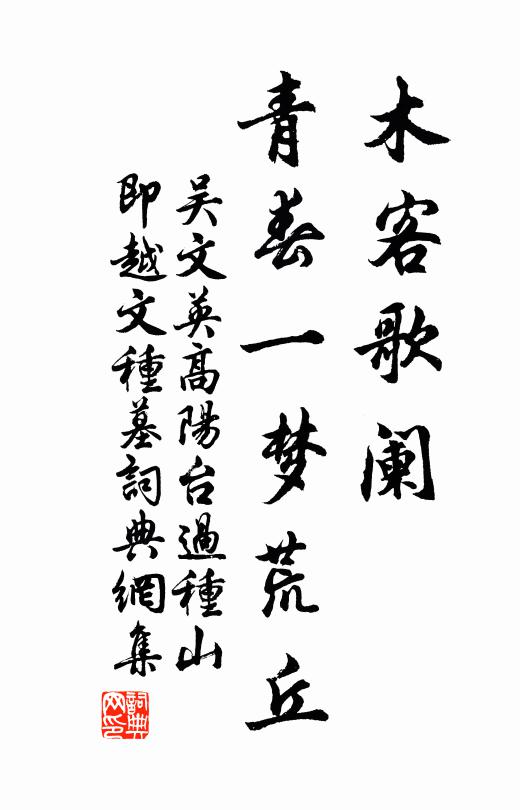 木客歌阑
青春一梦荒丘
吴文英高陽台過種山
即越文種墓詞典網集
詞典
网印